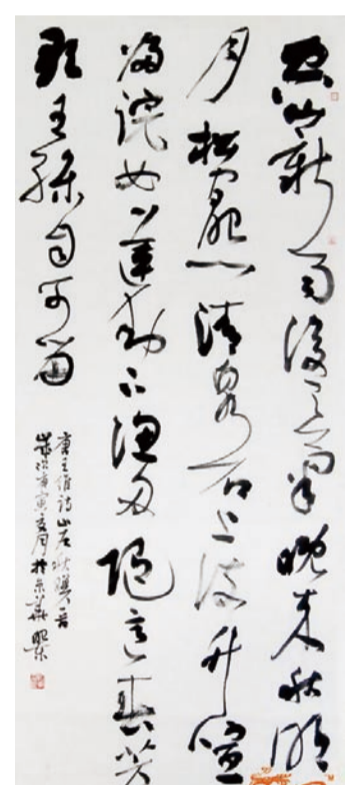 空山新雨後天氣晚來秋明
月松間照清泉石上流竹喧
歸浣女蓮動下漁舟隨意春芳
歇王孫自可留
唐王維詩山居秋暝一首
歲次庚寅夏月於京華